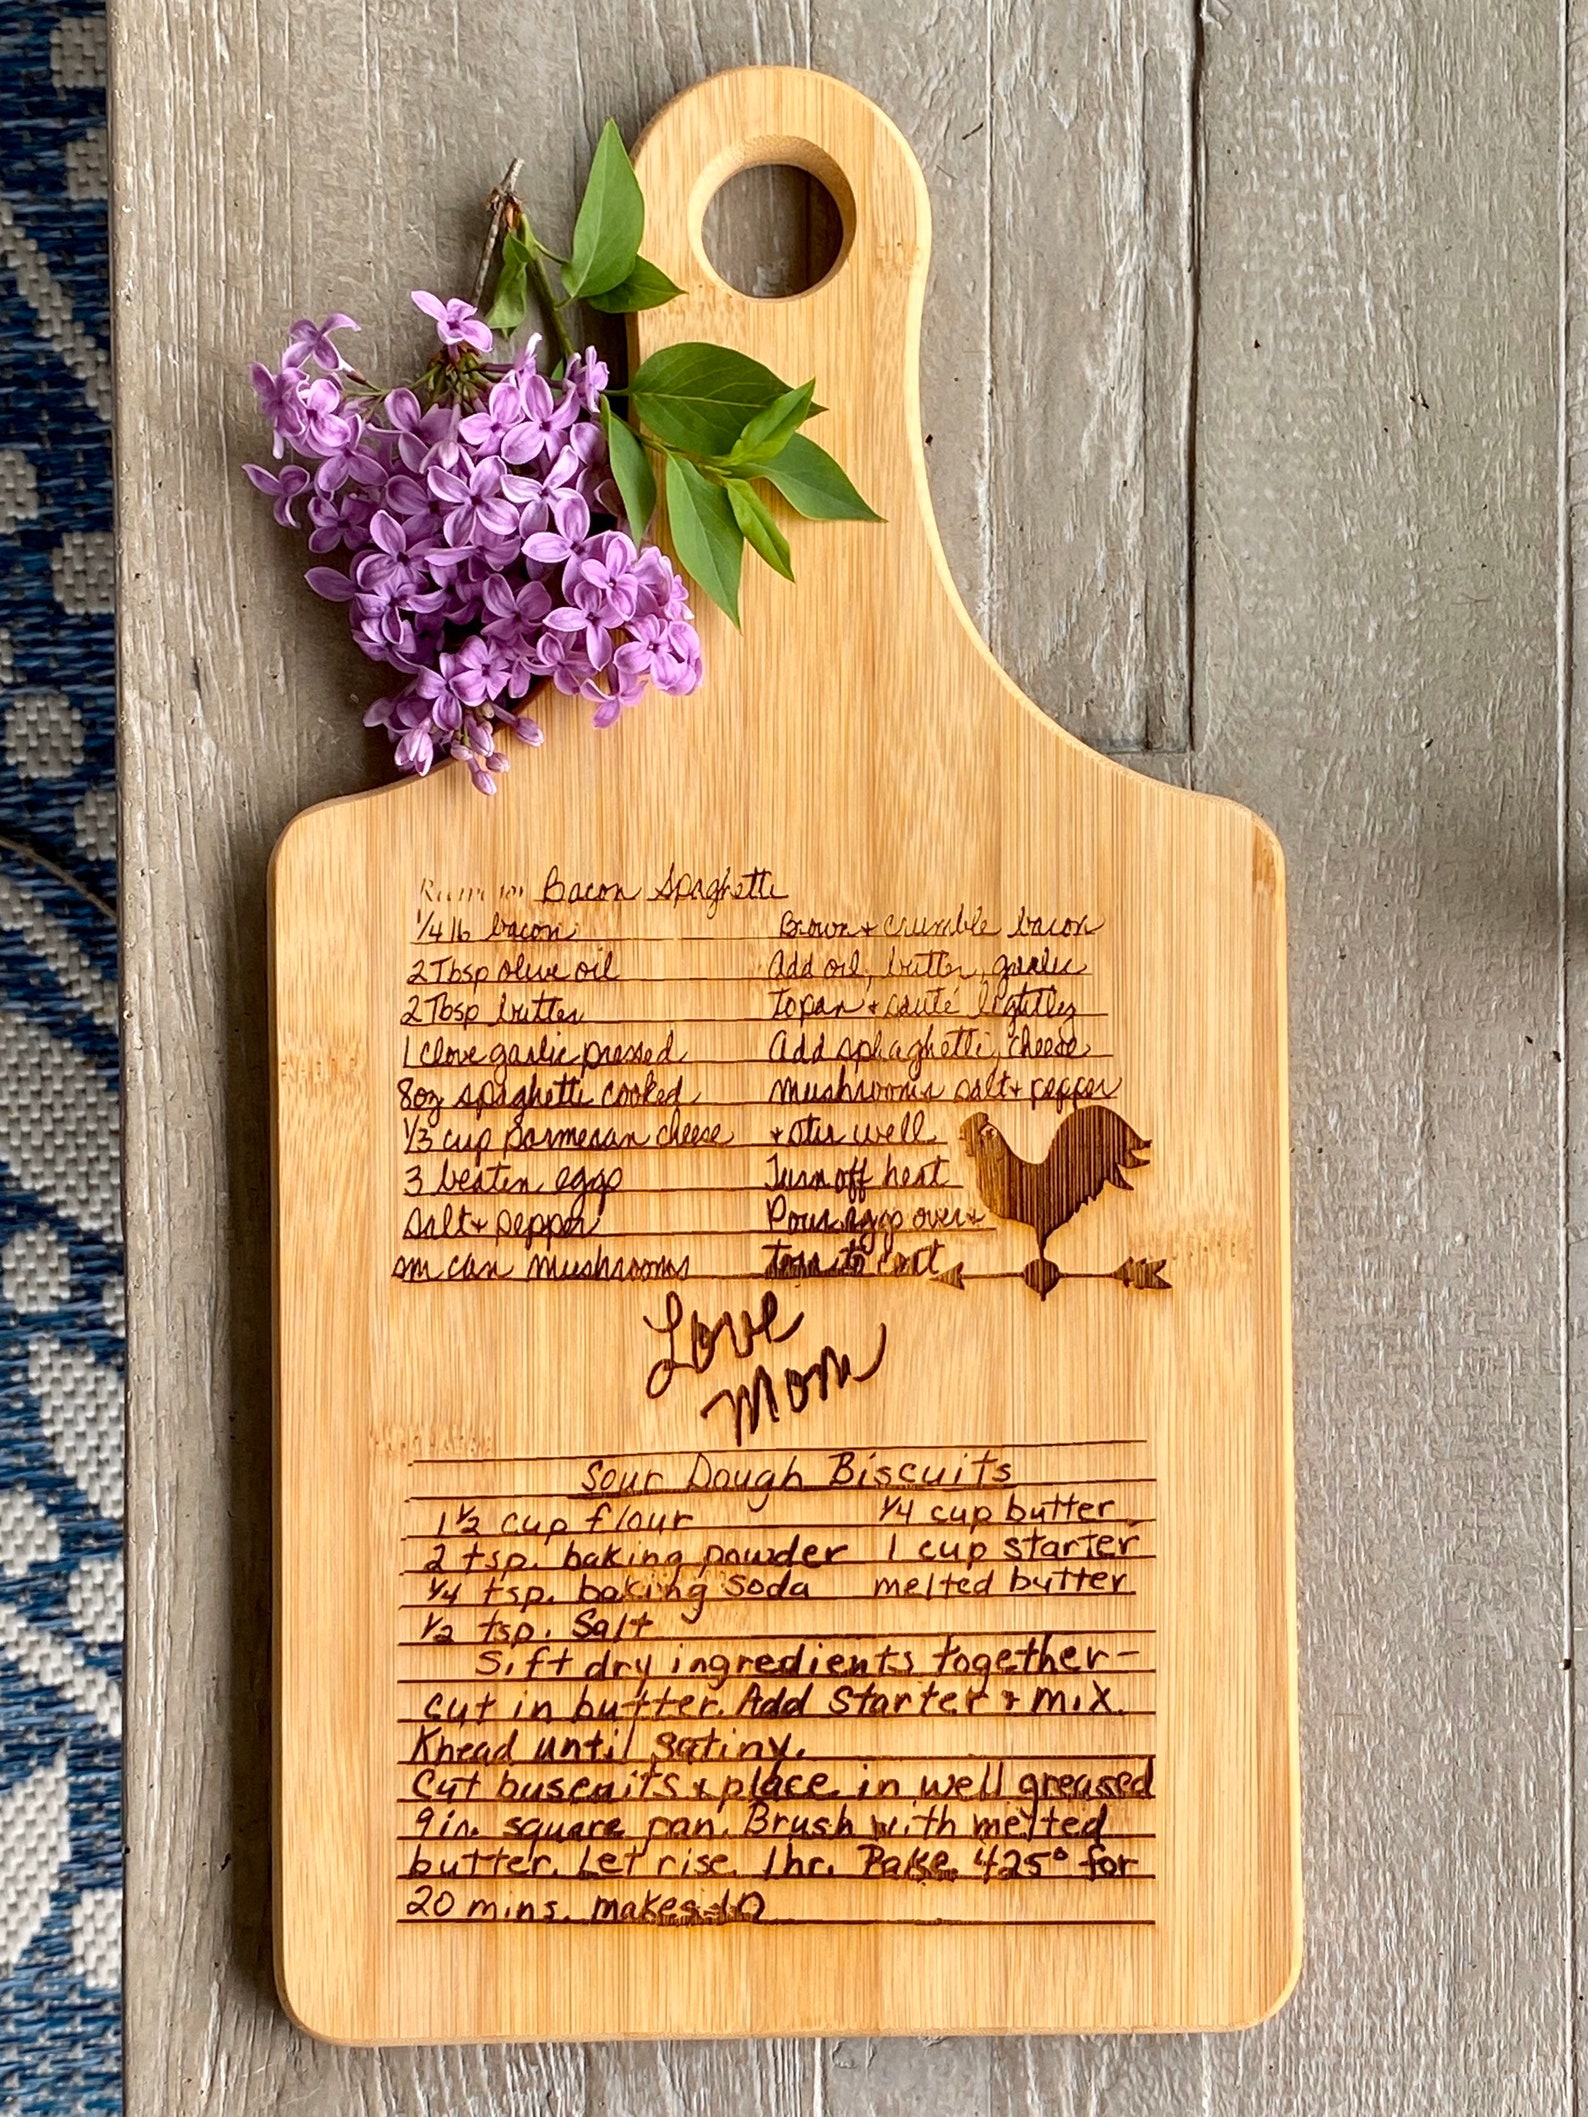 Recipe for Bacon Spaghetti
1/4 lb bacon
2 Tbsp olive oil
2 Tbsp butter
1 clove garlic pressed
8oz spaghetti cooked
1/3 cup parmesan cheese
3 beaten eggs
Salt + pepper
sm can mushrooms
Brown + crumble bacon
Add oil, butter, garlic
to pan + sauté lightly
Add sphaghetti, cheese,
mushrooms salt + pepper
+ stir well
Turn off heat
Pour eggs over +
toss to coat
Love
Mom
Sour Dough Biscuits
1 1/2 cup flour 1/4 cup butter
2 tsp. baking powder 1 cup starter
1/4 tsp. baking soda melted butter
1/2 tsp. Salt
Sift dry ingredients together-
cut in butter. Add Starter + mix.
Knead until satiny.
Cut buscuits + place in well greased
9in. square pan. Brush with melted
butter. Let rise 1hr. Bake 425° for
20 mins. makes 10